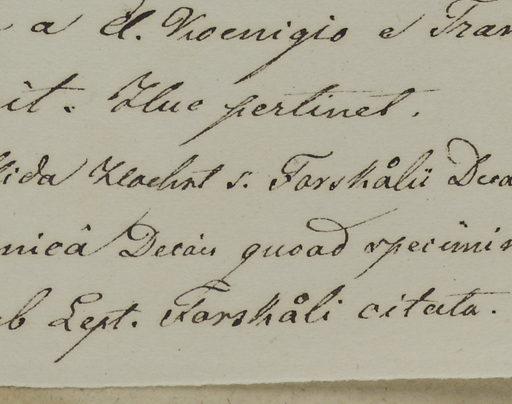 a cl. Koenigio e Tran
it. Huc pertinet.
Vahl s. Forskålii Deca
nicâ Decais quoad specimin
b Lept. Forskåli citata.